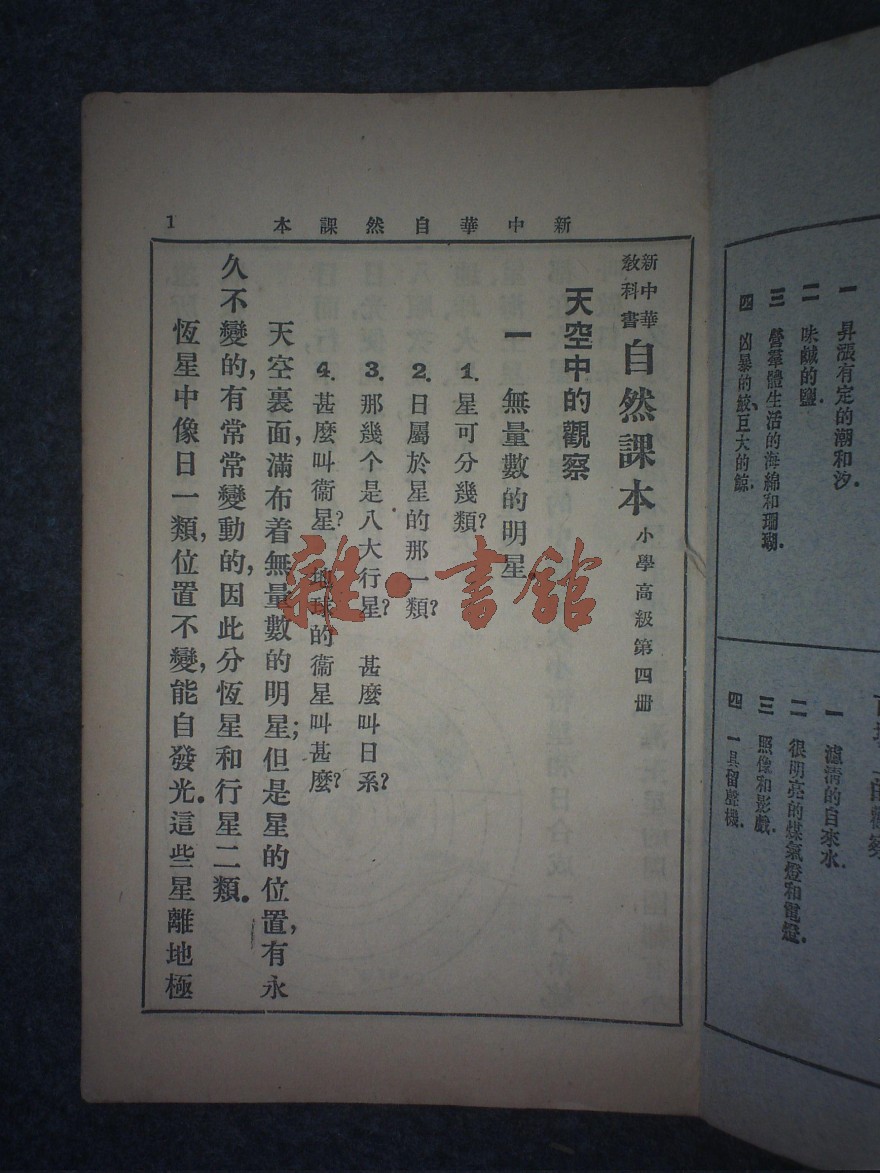 新中華自然課本
1
新中華
教科書
自然課本
小學高級第四册
天空中的觀察
一 無量數的明星.
1. 星可分幾類?
2. 日屬於星的那一類?
3. 那幾个是八大行星? 甚麼叫日系?
4. 甚麼叫衞星? 地球的衞星叫甚麼?
天空裏面,滿布着無量數的明星;但是星的位置,有永
久不變的,有常常變動的,因此分恆星和行星二類.
恆星中像日一類,位置不變,能自發光.這些星離地極
雜·書舘
一 昇漲有定的潮和汐.
二 味鹹的鹽.
三 營羣體生活的海綿和珊瑚.
四 凶暴的鮫,巨大的鯨.
一 濾清的自來水.
二 很明亮的煤氣燈和電燈.
三 照像和影戲.
四 一具留聲機.